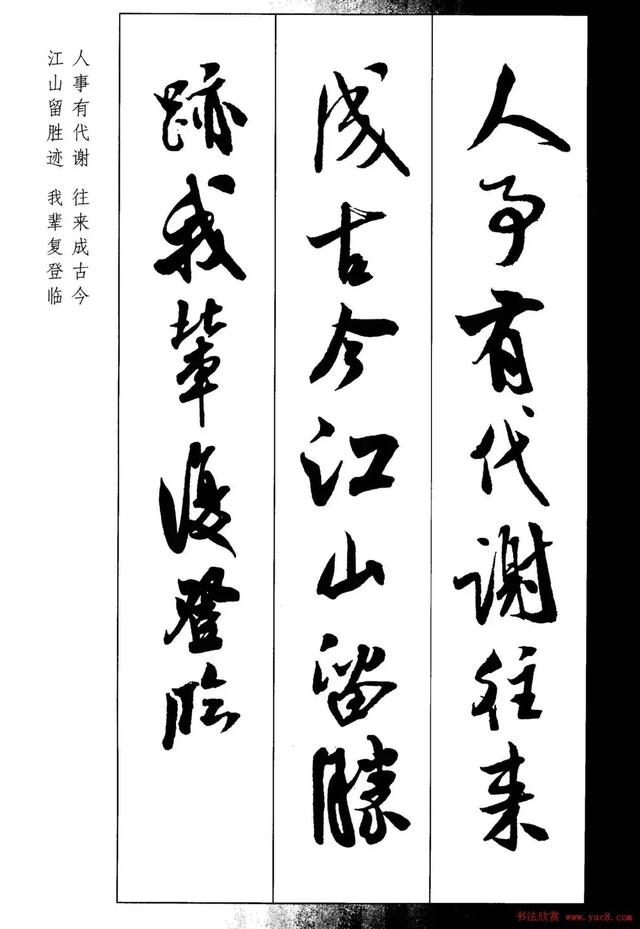 人事有代谢 往来成古今
江山留胜迹 我辈复登临
人事有代謝往來
成古今江山留勝
跡我輩復登臨
书法欣赏 www.yac8.com